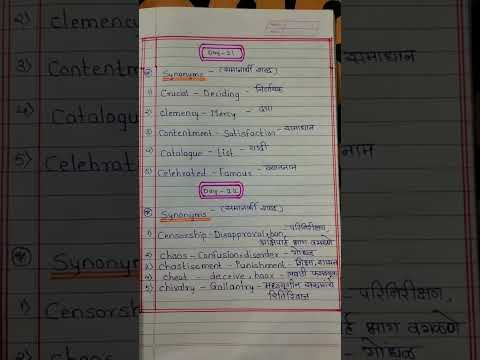 Day-21
Synonyms - (समानार्थी शब्द)
1) Crucial - Deciding - निर्णायक
2) clemency - Mercy - दया
3) Contentment - Satisfaction - समाधान
4) Catalogue - List - यादी
5) Celebrated - Famous - ख्यातनाम
Day-22
Synonyms - (समानार्थी शब्द)
1) Censorship - Disapproval, ban, - परिनिरीक्षण,
भाग वगळणे
2) chaos - Confusion, disorder - गोंधळ
3) chastisement - Punishment - शिक्षा,
4) cheat - deceive, hoax -
5) chivalry - Gallantry -
2) clemency
3) Contentment
4) Catalogue
5) Celebrated
Synonyms
1) Censorship
2) chaos
समाधान
यादी
ख्यातनाम
परिनिरीक्षण,
भाग वगळणे
गोंधळ